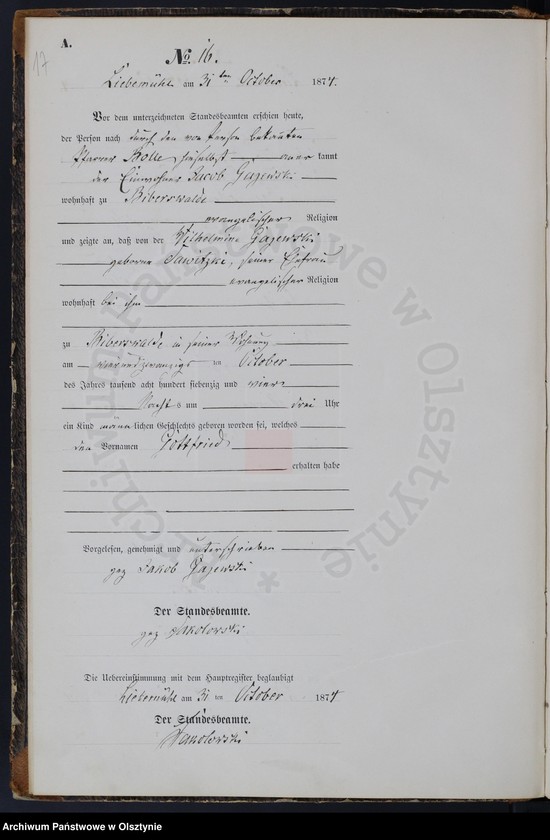 17
A.
No. 16.
Liebemühl am 31ten October 1874.
Vor dem unterzeichneten Standesbeamten erschien heute,
der Person nach durch den von Person bekannten
Pfarrer hieselbst aner kannt
der Einwohner Jacob Gajewski
wohnhaft zu Biberswalde
evangelischer Religion
und zeigte an, daß von der Wilhelmine Gajewski
geborne Sawitzki, seiner Ehefrau
evangelischer Religion
wohnhaft bei ihm
zu Biberswalde in seiner Wohnung
am vierundzwanzigs ten October
des Jahres tausend acht hundert siebenzig und vier
Nachts um drei Uhr
ein Kind männlichen Geschlechts geboren worden sei, welches
den Vornamen Gottfried
erhalten habe
Vorgelesen, genehmigt und unterschrieben
gez Jakob Gajewski
Der Standesbeamte.
gez Sakolowski
Die Uebereinstimmung mit dem Hauptregister beglaubigt
Liebemühl am 31 ten October 1874
Der Standesbeamte.
Sakolowski
Archiwum Państwowe w Olsztynie
Archiwum Państwowe w Olsztynie